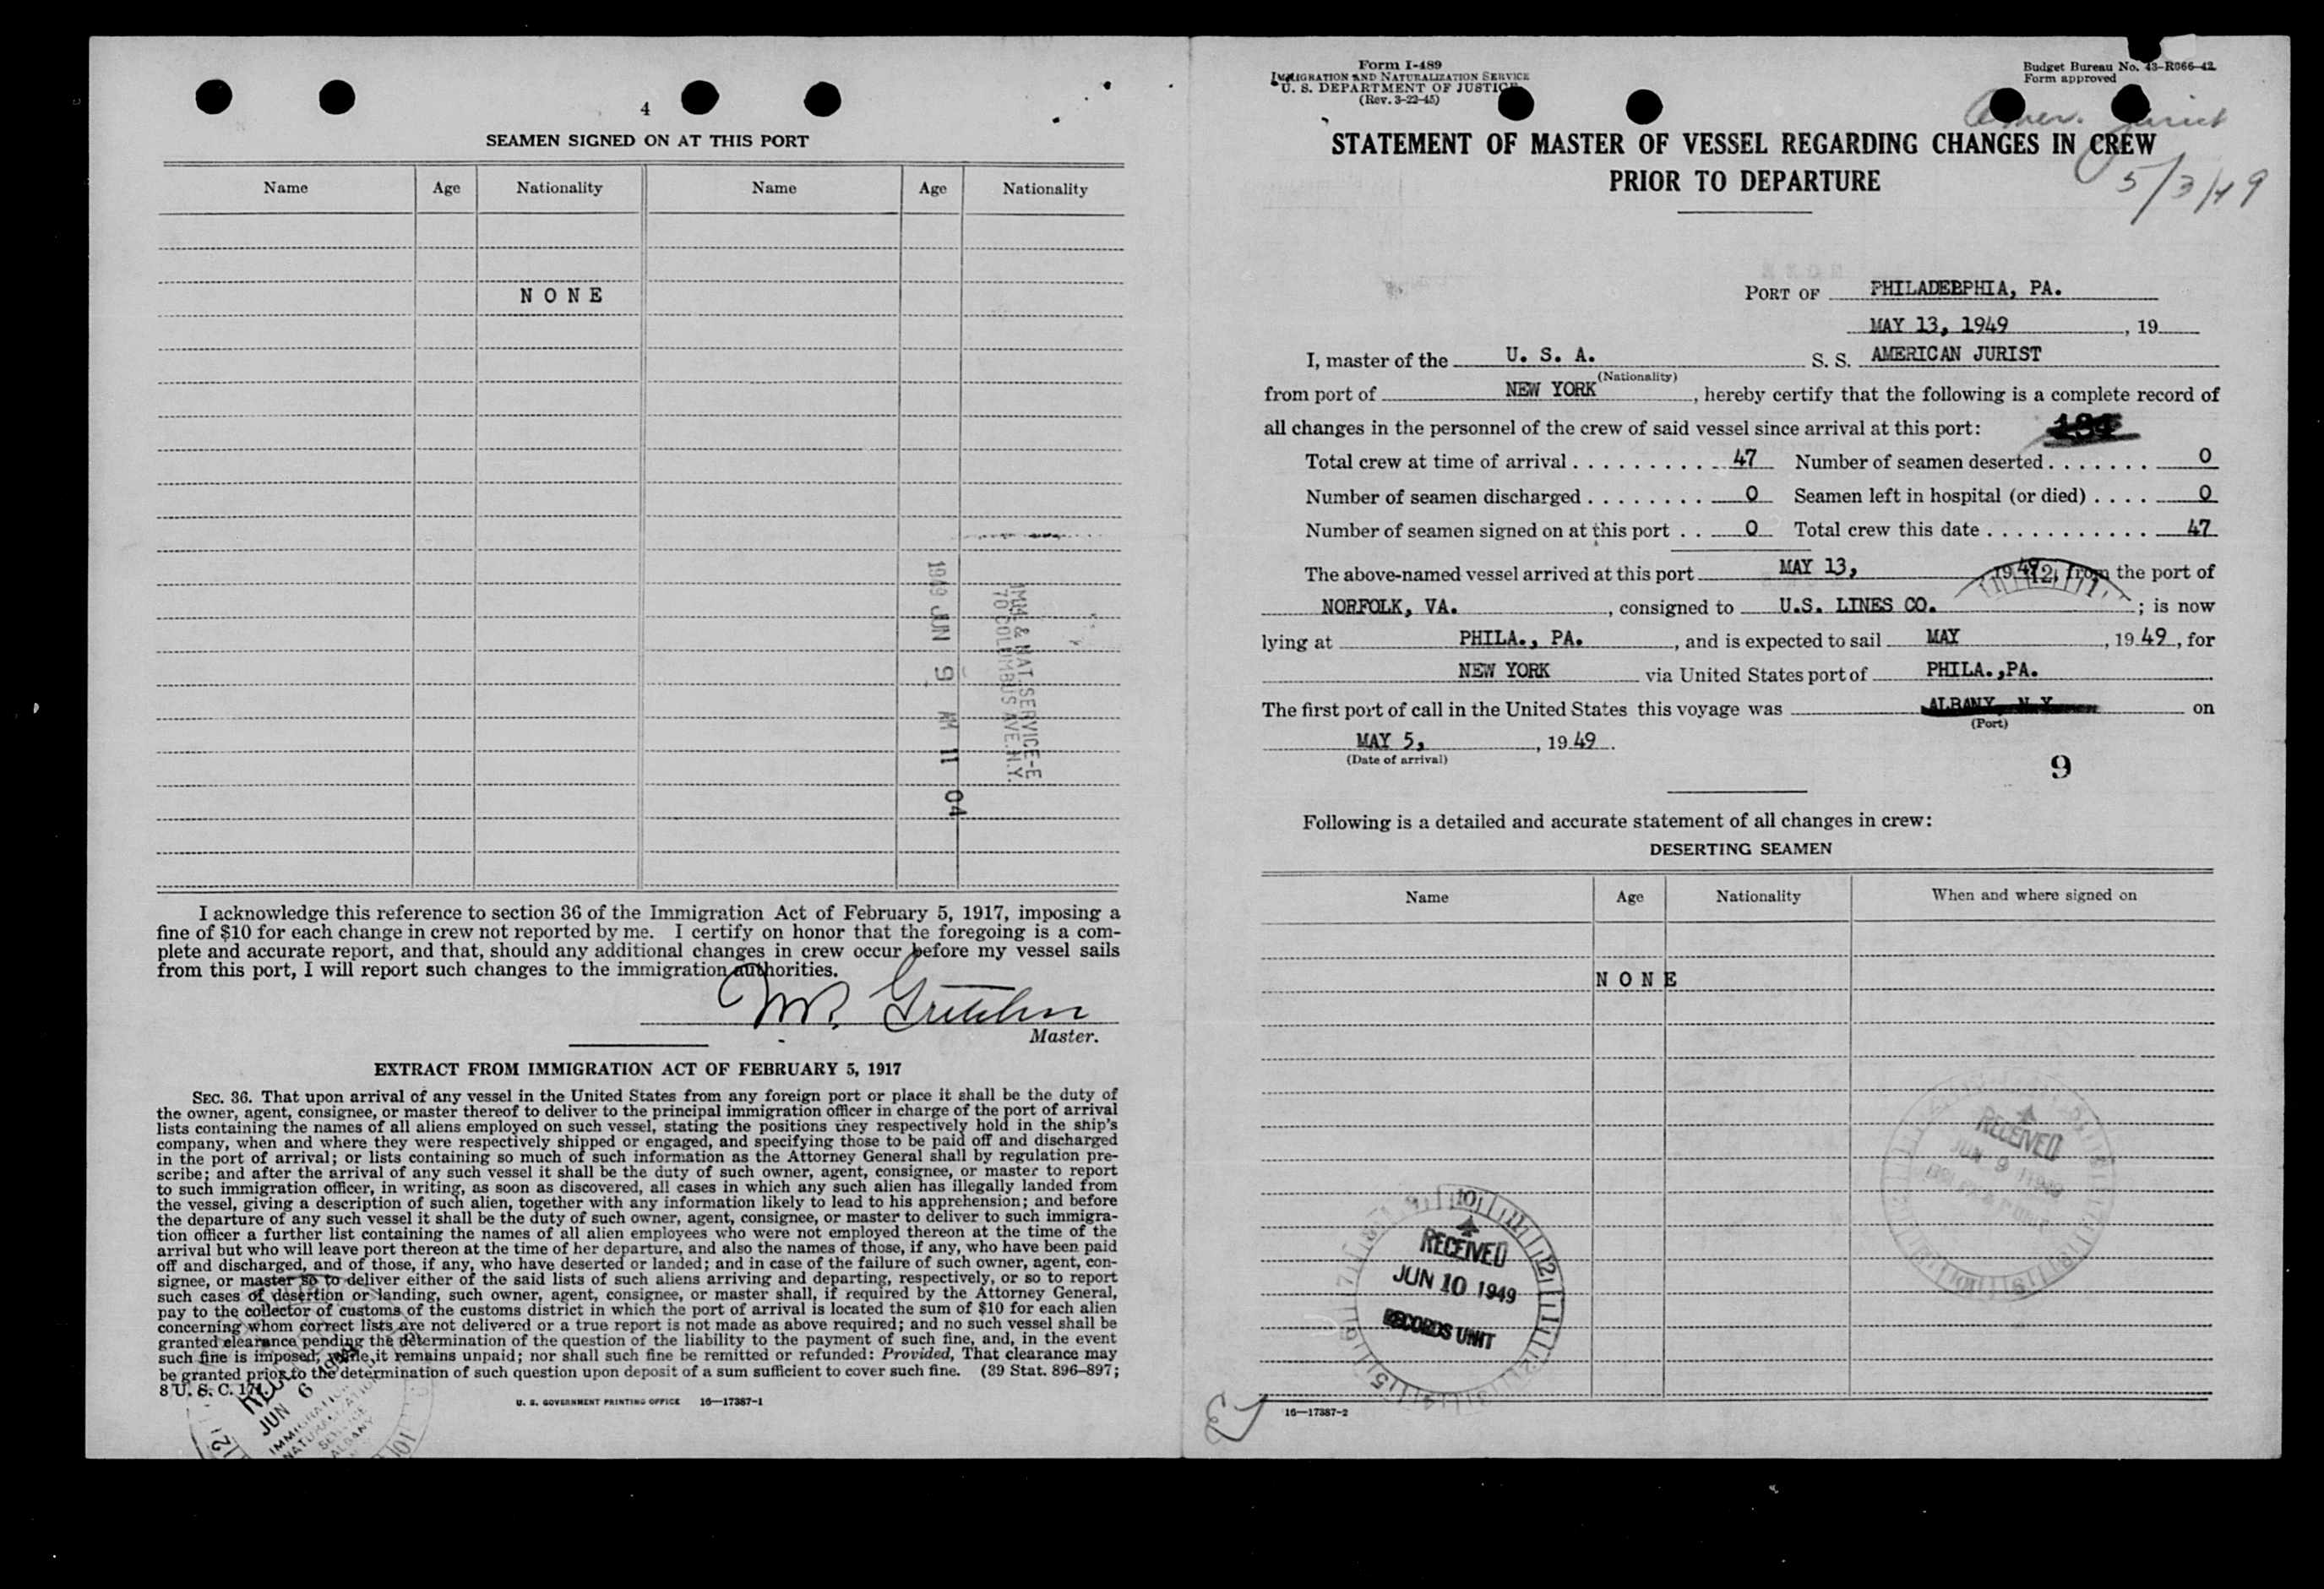 4
SEAMEN SIGNED ON AT THIS PORT
Name Age Nationality Name Age Nationality
NONE
1949 JUN 9 AM 11 04
IMM. & NAT. SERVICE-E
70 COLUMBUS AVE. N.Y.
I acknowledge this reference to section 36 of the Immigration Act of February 5, 1917, imposing a
fine of $10 for each change in crew not reported by me. I certify on honor that the foregoing is a com-
plete and accurate report, and that, should any additional changes in crew occur before my vessel sails
from this port, I will report such changes to the immigration authorities.
Master.
EXTRACT FROM IMMIGRATION ACT OF FEBRUARY 5, 1917
SEC. 36. That upon arrival of any vessel in the United States from any foreign port or place it shall be the duty of
the owner, agent, consignee, or master thereof to deliver to the principal immigration officer in charge of the port of arrival
lists containing the names of all aliens employed on such vessel, stating the positions they respectively hold in the ship's
company, when and where they were respectively shipped or engaged, and specifying those to be paid off and discharged
in the port of arrival; or lists containing so much of such information as the Attorney General shall by regulation pre-
scribe; and after the arrival of any such vessel it shall be the duty of such owner, agent, consignee, or master to report
to such immigration officer, in writing, as soon as discovered, all cases in which any such alien has illegally landed from
the vessel, giving a description of such alien, together with any information likely to lead to his apprehension; and before
the departure of any such vessel it shall be the duty of such owner, agent, consignee, or master to deliver to such immigra-
tion officer a further list containing the names of all alien employees who were not employed thereon at the time of the
arrival but who will leave port thereon at the time of her departure, and also the names of those, if any, who have been paid
off and discharged, and of those, if any, who have deserted or landed; and in case of the failure of such owner, agent, con-
signee, or master so to deliver either of the said lists of such aliens arriving and departing, respectively, or so to report
such cases of desertion or landing, such owner, agent, consignee, or master shall, if required by the Attorney General,
pay to the collector of customs of the customs district in which the port of arrival is located the sum of $10 for each alien
concerning whom correct lists are not delivered or a true report is not made as above required; and no such vessel shall be
granted clearance pending the determination of the question of the liability to the payment of such fine, and, in the event
such fine is imposed, while it remains unpaid; nor shall such fine be remitted or refunded: Provided, That clearance may
be granted prior to the determination of such question upon deposit of a sum sufficient to cover such fine. (39 Stat. 896-897;
8 U. S. C. 171.)
U. S. GOVERNMENT PRINTING OFFICE 16—17387-1
JUN 6
IMMIGRATION
NATURALIZATION
SERVICE
ALBANY
Form I-489
IMMIGRATION AND NATURALIZATION SERVICE
U. S. DEPARTMENT OF JUSTICE
(Rev. 3-22-45)
Budget Bureau No. 43-R066-42
Form approved
Amer. Jurist
5/3/49
STATEMENT OF MASTER OF VESSEL REGARDING CHANGES IN CREW
PRIOR TO DEPARTURE
PORT OF PHILADEBPHIA, PA.
MAY 13, 1949, 19
I, master of the U. S. A. S. S. AMERICAN JURIST
(Nationality)
from port of NEW YORK, hereby certify that the following is a complete record of
all changes in the personnel of the crew of said vessel since arrival at this port:
Total crew at time of arrival 47 Number of seamen deserted 0
Number of seamen discharged 0 Seamen left in hospital (or died) 0
Number of seamen signed on at this port 0 Total crew this date 47
The above-named vessel arrived at this port MAY 13, 1949, from the port of
NORFOLK, VA., consigned to U.S. LINES CO.; is now
lying at PHILA., PA., and is expected to sail MAY, 1949, for
NEW YORK via United States port of PHILA.,PA.
The first port of call in the United States this voyage was ALBANY, N.Y. on
(Port)
MAY 5, 1949.
(Date of arrival)
9
Following is a detailed and accurate statement of all changes in crew:
DESERTING SEAMEN
Name Age Nationality When and where signed on
NONE
RECEIVED
JUN 9 1949
RECEIVED
JUN 10 1949
RECORDS UNIT
16—17387-2